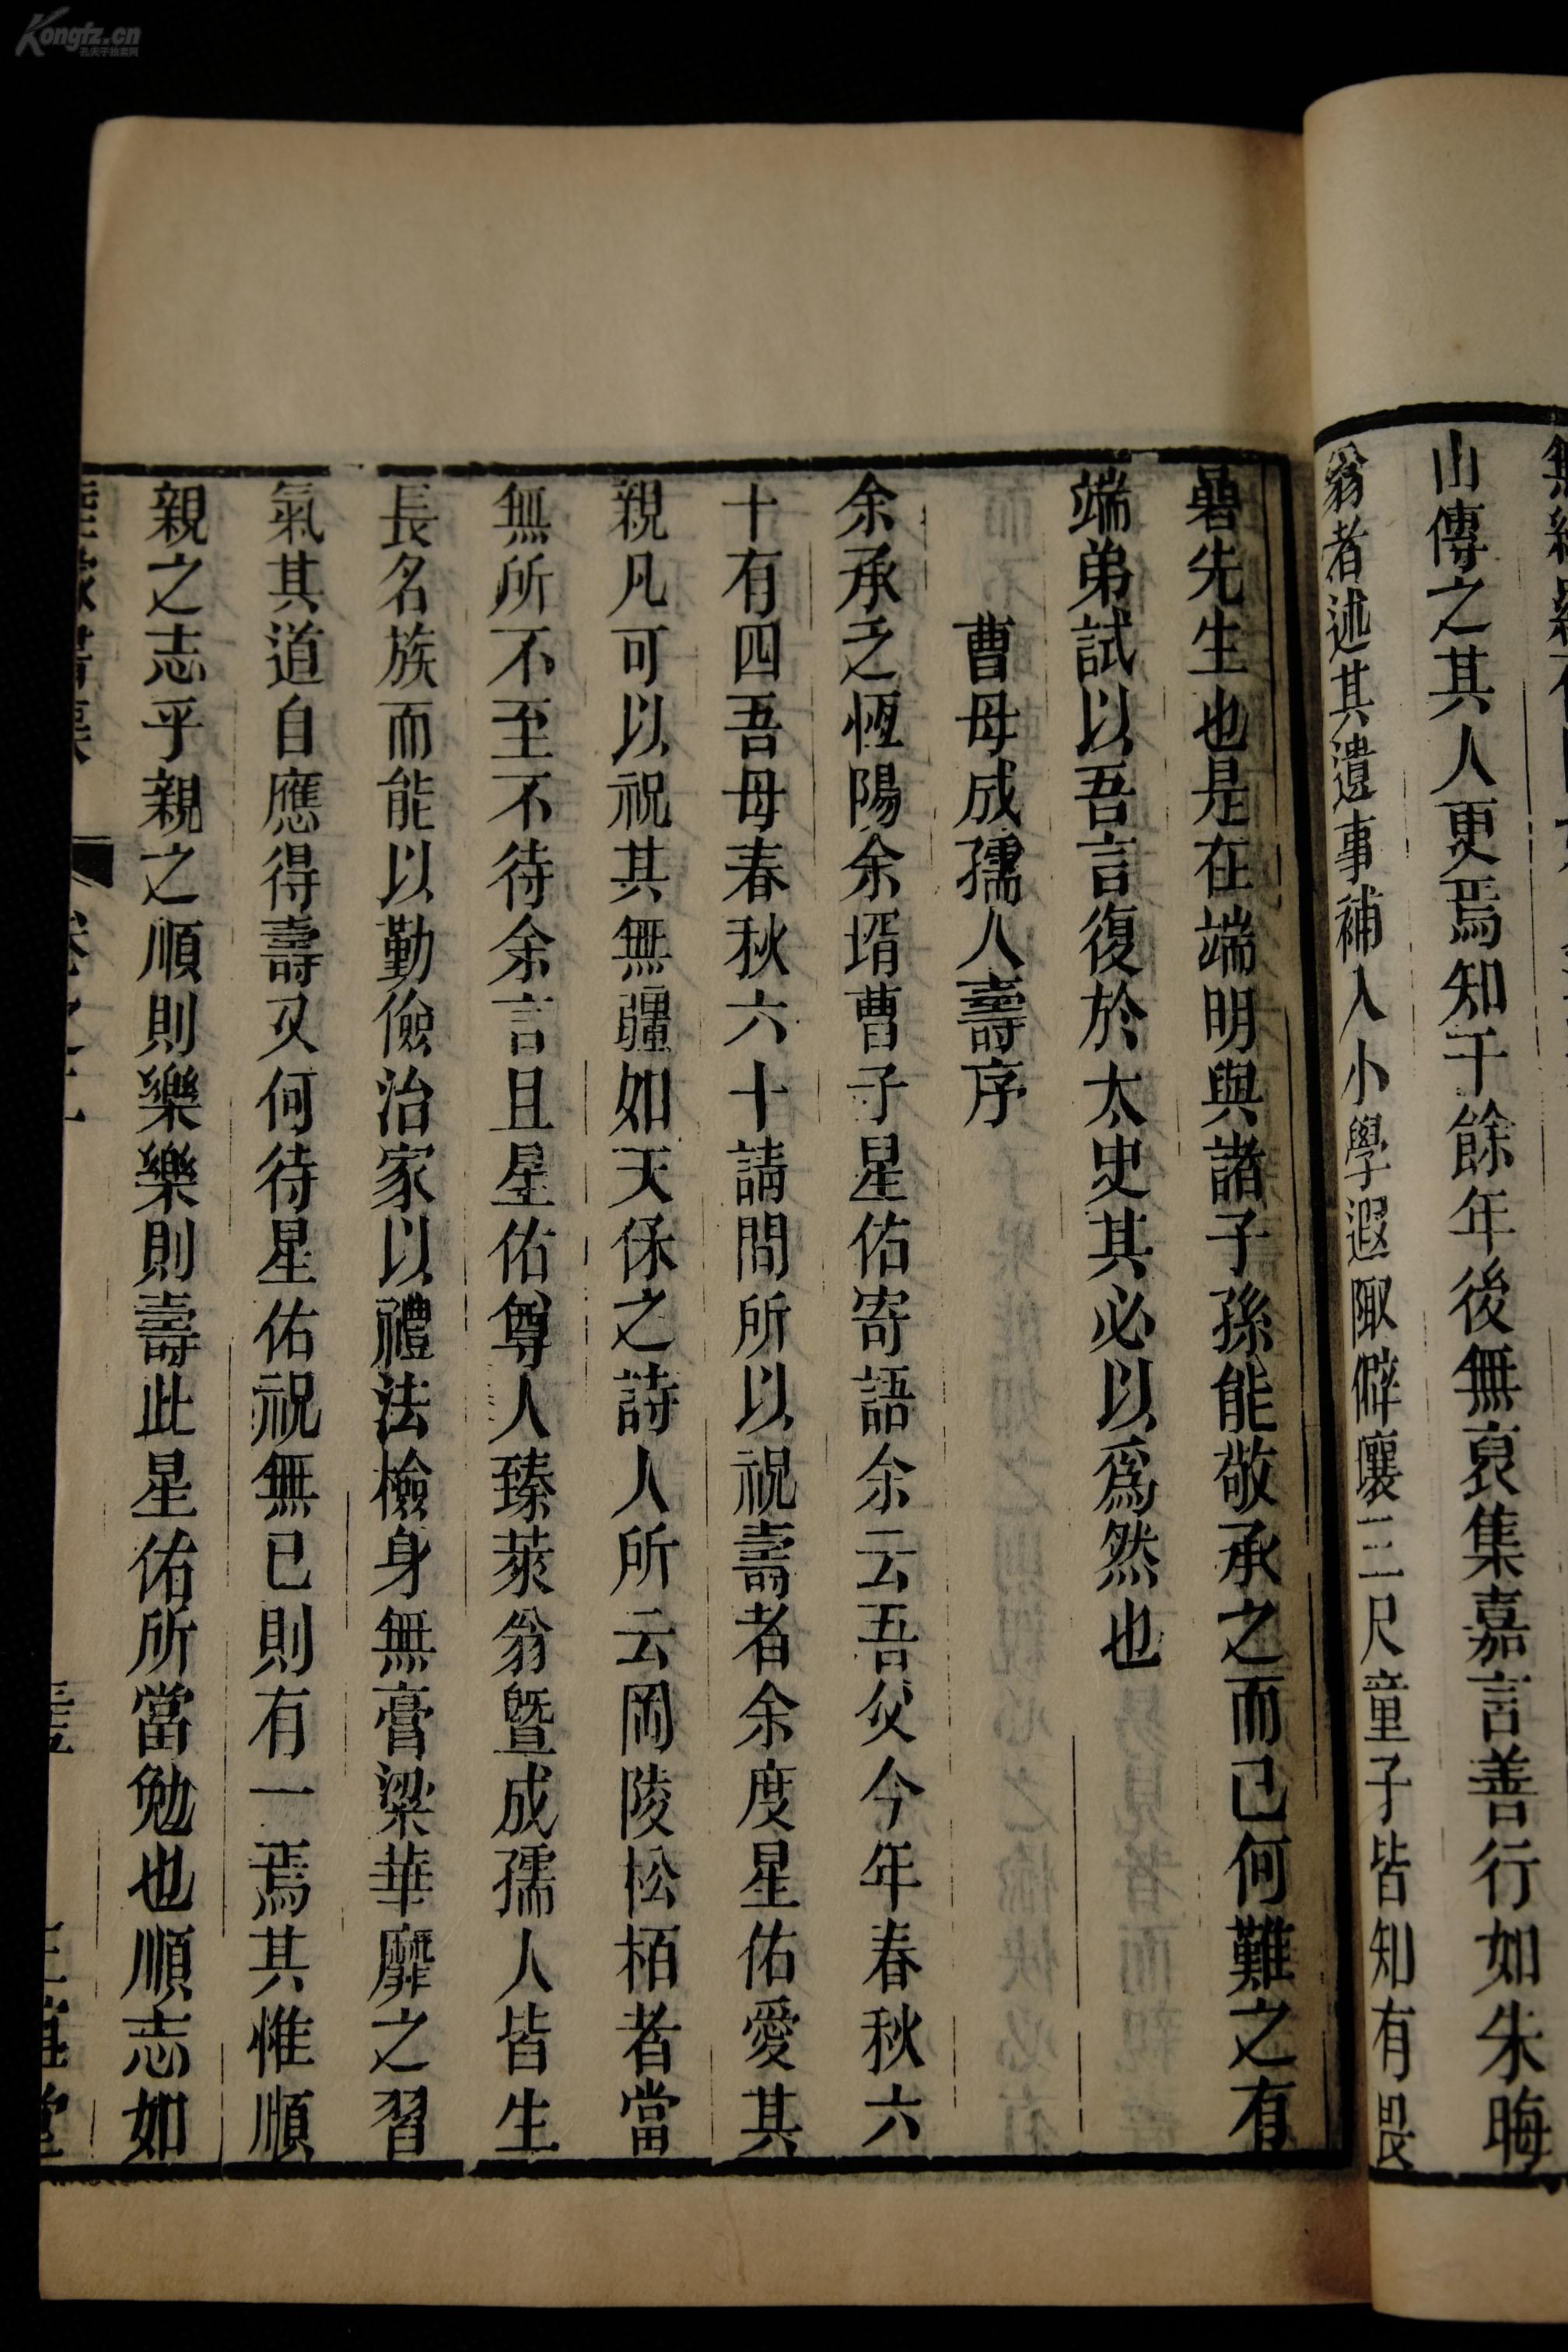 山傳之其人更焉知千餘年後無裒集嘉言善行如朱晦
翁者述其遺事補入小學遐陬僻壤三尺童子皆知有畏
碞先生也是在端明與諸子孫能敬承之而已何難之有
端弟試以吾言復於太史其必以爲然也
曹母成孺人壽序
余承乏恆陽余壻曹子星佑寄語余云吾父今年春秋六
十有四吾母春秋六十請問所以祝壽者余度星佑愛其
親凡可以祝其無疆如天保之詩人所云岡陵松栢者當
無所不至不待余言且星佑尊人臻萊翁曁成孺人皆生
長名族而能以勤儉治家以禮法檢身無膏梁華靡之習
氣其道自應得壽又何待星佑祝無已則有一焉其惟順
親之志乎親之順則樂樂則壽此星佑所當勉也順志如
Kongfz.cn
孔夫子拍卖网